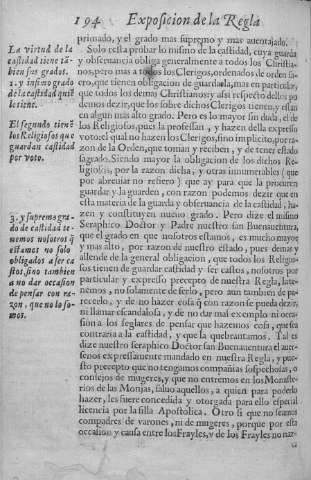 194 Exposicion de la Regla
primado, y el grado mas supremo y mas auentajado.
Solo resta probar lo mismo de la castidad, cuya guarda
y obseruancia obliga generalmente a todos los Christia-
nos, pero mas a todos los Clerigos, ordenados de orden sa-
cro, que tienen obligacion de guardarla, mas en particular,
que todos los demas Christianos; y assi respecto dellos po
demos dezir, que los sobre dichos Clerigos tienen, y estan
en algun mas alto grado. Pero es lo mayor sin duda, el de
los Religiosos, pues la professan, y hazen della expresso
voto: el qual no hazen los Clerigos, sino implicito, por ra-
zon de la Orden, que toman y reciben, y de tener estado
sagrado. Siendo mayor la obligacion de los dichos Re-
ligiosos, por la razon dicha, y otras innumerables (que
por abreuiar no refiero) que ay para que la procuren
guardar y la guarden, con razon podemos dezir que en
esta materia de la guarda y obseruancia de la castidad, ha-
zen y constituyen nueuo grado. Pero dize el mismo
Seraphico Doctor y Padre nuestro san Buenauentura,
que el grado en que nosotros estamos, es mucho mayor
y mas alto, por razon de nuestro estado, pues demas y
allende de la general obligacion, que todos los Religio-
sos tienen de guardar castidad y ser castos, nosotros por
particular y expresso precepto de nuestra Regla, la te-
nemos, y no solamente de serlo, pero aun tambien de pa-
recerlo, y de no hazer cosa q̃ con razon se pueda dezir,
ni llamar escandalosa, y de no dar mal exemplo ni oca-
sion a los seglares de pensar que hazemos cosa, que sea
contraria a la castidad, y que la quebrantamos. Tal es
dize nuestro seraphico Doctor san Buenauentura el auer-
senos expressamente mandado en nuestra Regla, y pue-
sto precepto que no tengamos compañias sospechosas, o
consejos de mugeres, y que no entremos en los Monaste-
rios de las Monjas, saluo aquellos, a quien para poderlo
hazer, les fuere concedida y otorgada para ello especial
licencia por la silla Apostolica. Otro si que no seamos
compadres de varones, ni de mugeres, porque por esta
occasion y causa entre los Frayles, y de los Frayles no naz-
ca
La virtud de la
castidad tiene tã
bien sus grados.
1. y infimo grado
de la castidad quiẽ
le tiene.
El segundo tienẽ
los Religiosos que
guardan castidad
por voto.
3. y supremo gra-
do de castidad te-
nemos nosotros q̃
estamos no solo
obligados a ser ca
stos, sino tambien
a no dar occasion
de pensar con ra-
zon, que no lo so-
mos.